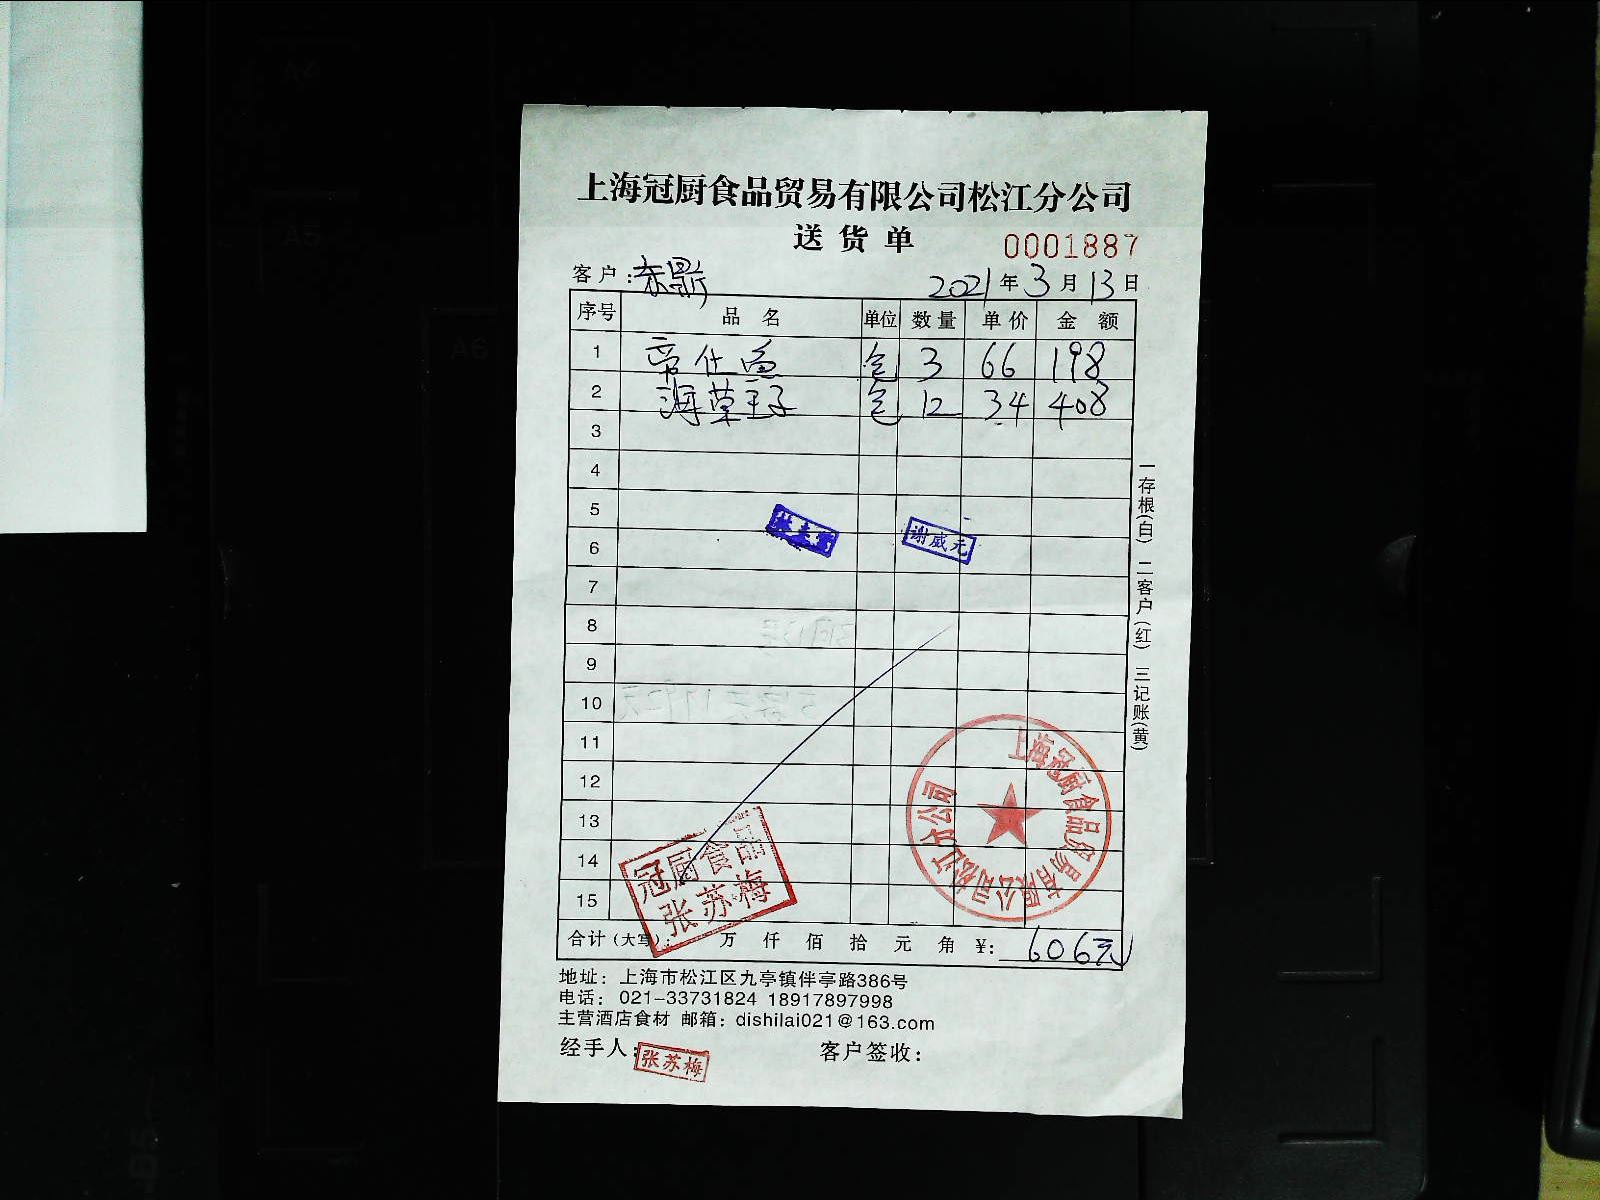 上海冠厨食品贸易有限公司松江分公司
送货单
0001887
客户:
2021年3月13日
序号 品名 单位 数量 单价 金额
1 帝仕鱼 包 3 66 198
2 海草王子 包 12 34 408
3
4
5
谢威元
6
7
8
9
10
11
12
13
14
15
上海冠厨食品贸易有限公司松江分公司
冠厨食品
张苏梅
合计(大写): 万 仟 佰 拾 元 角 ¥: 606元
一存根(白) 二客户(红) 三记账(黄)
地址: 上海市松江区九亭镇伴亭路386号
电话: 021-33731824 18917897998
主营酒店食材 邮箱: dishilai021@163.com
经手人: 张苏梅 客户签收: